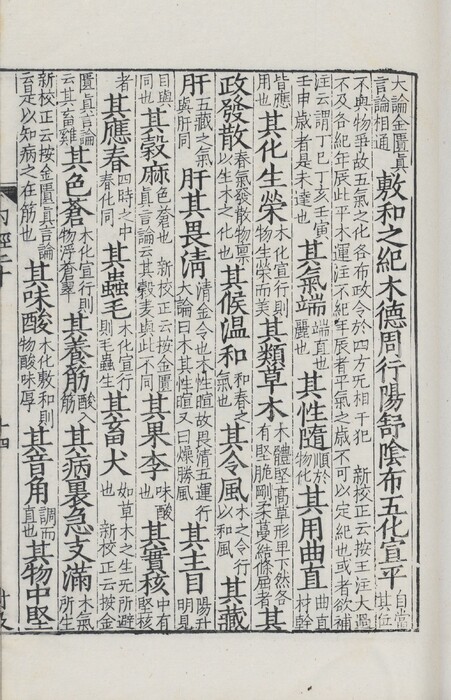 大論金匱真言論相通敷和之紀木德周行陽舒陰布五化宣平自當其位
不與物爭故五氣之化各布政令於四方无相干犯　新校正云按王注大過不及各紀年辰此平木運注不紀年辰者平氣之歲不可以定紀也或者欲補
注云謂丁巳丁亥壬寅壬申歲者是未達也其氣端端直也麗也其性隨順於物化其用曲直曲直材幹
皆應用也其化生榮木化宣行則物生榮而美其類草木木體堅高草形卑下然各有堅脆剛柔蔓結條屈者其
政發散春氣發散物稟以生木之化也其候温和和春之氣也其令風木之令行以和風其藏
肝五藏之氣與肝同肝其畏清清金令也木性暄故畏清五運行大論曰木其性暄又曰燥勝風其主目陽升明見
目與同也其穀麻色蒼也　新校正云按金匱真言論云其穀麥與此不同其果李味酸也其實核中有堅核
者其應春四時之中春化同其蟲毛木化宣行則毛蟲生其畜犬如草木之生无所避也　新校正云按金
匱真言論云其畜雞其色蒼木化宣行則物浮蒼翠其養筋酸入筋其病裏急支滿木氣所生
新校正云按金匱真言論云是以知病之在筋也其味酸木化敷和則物酸味厚其音角調而直也其物中堅